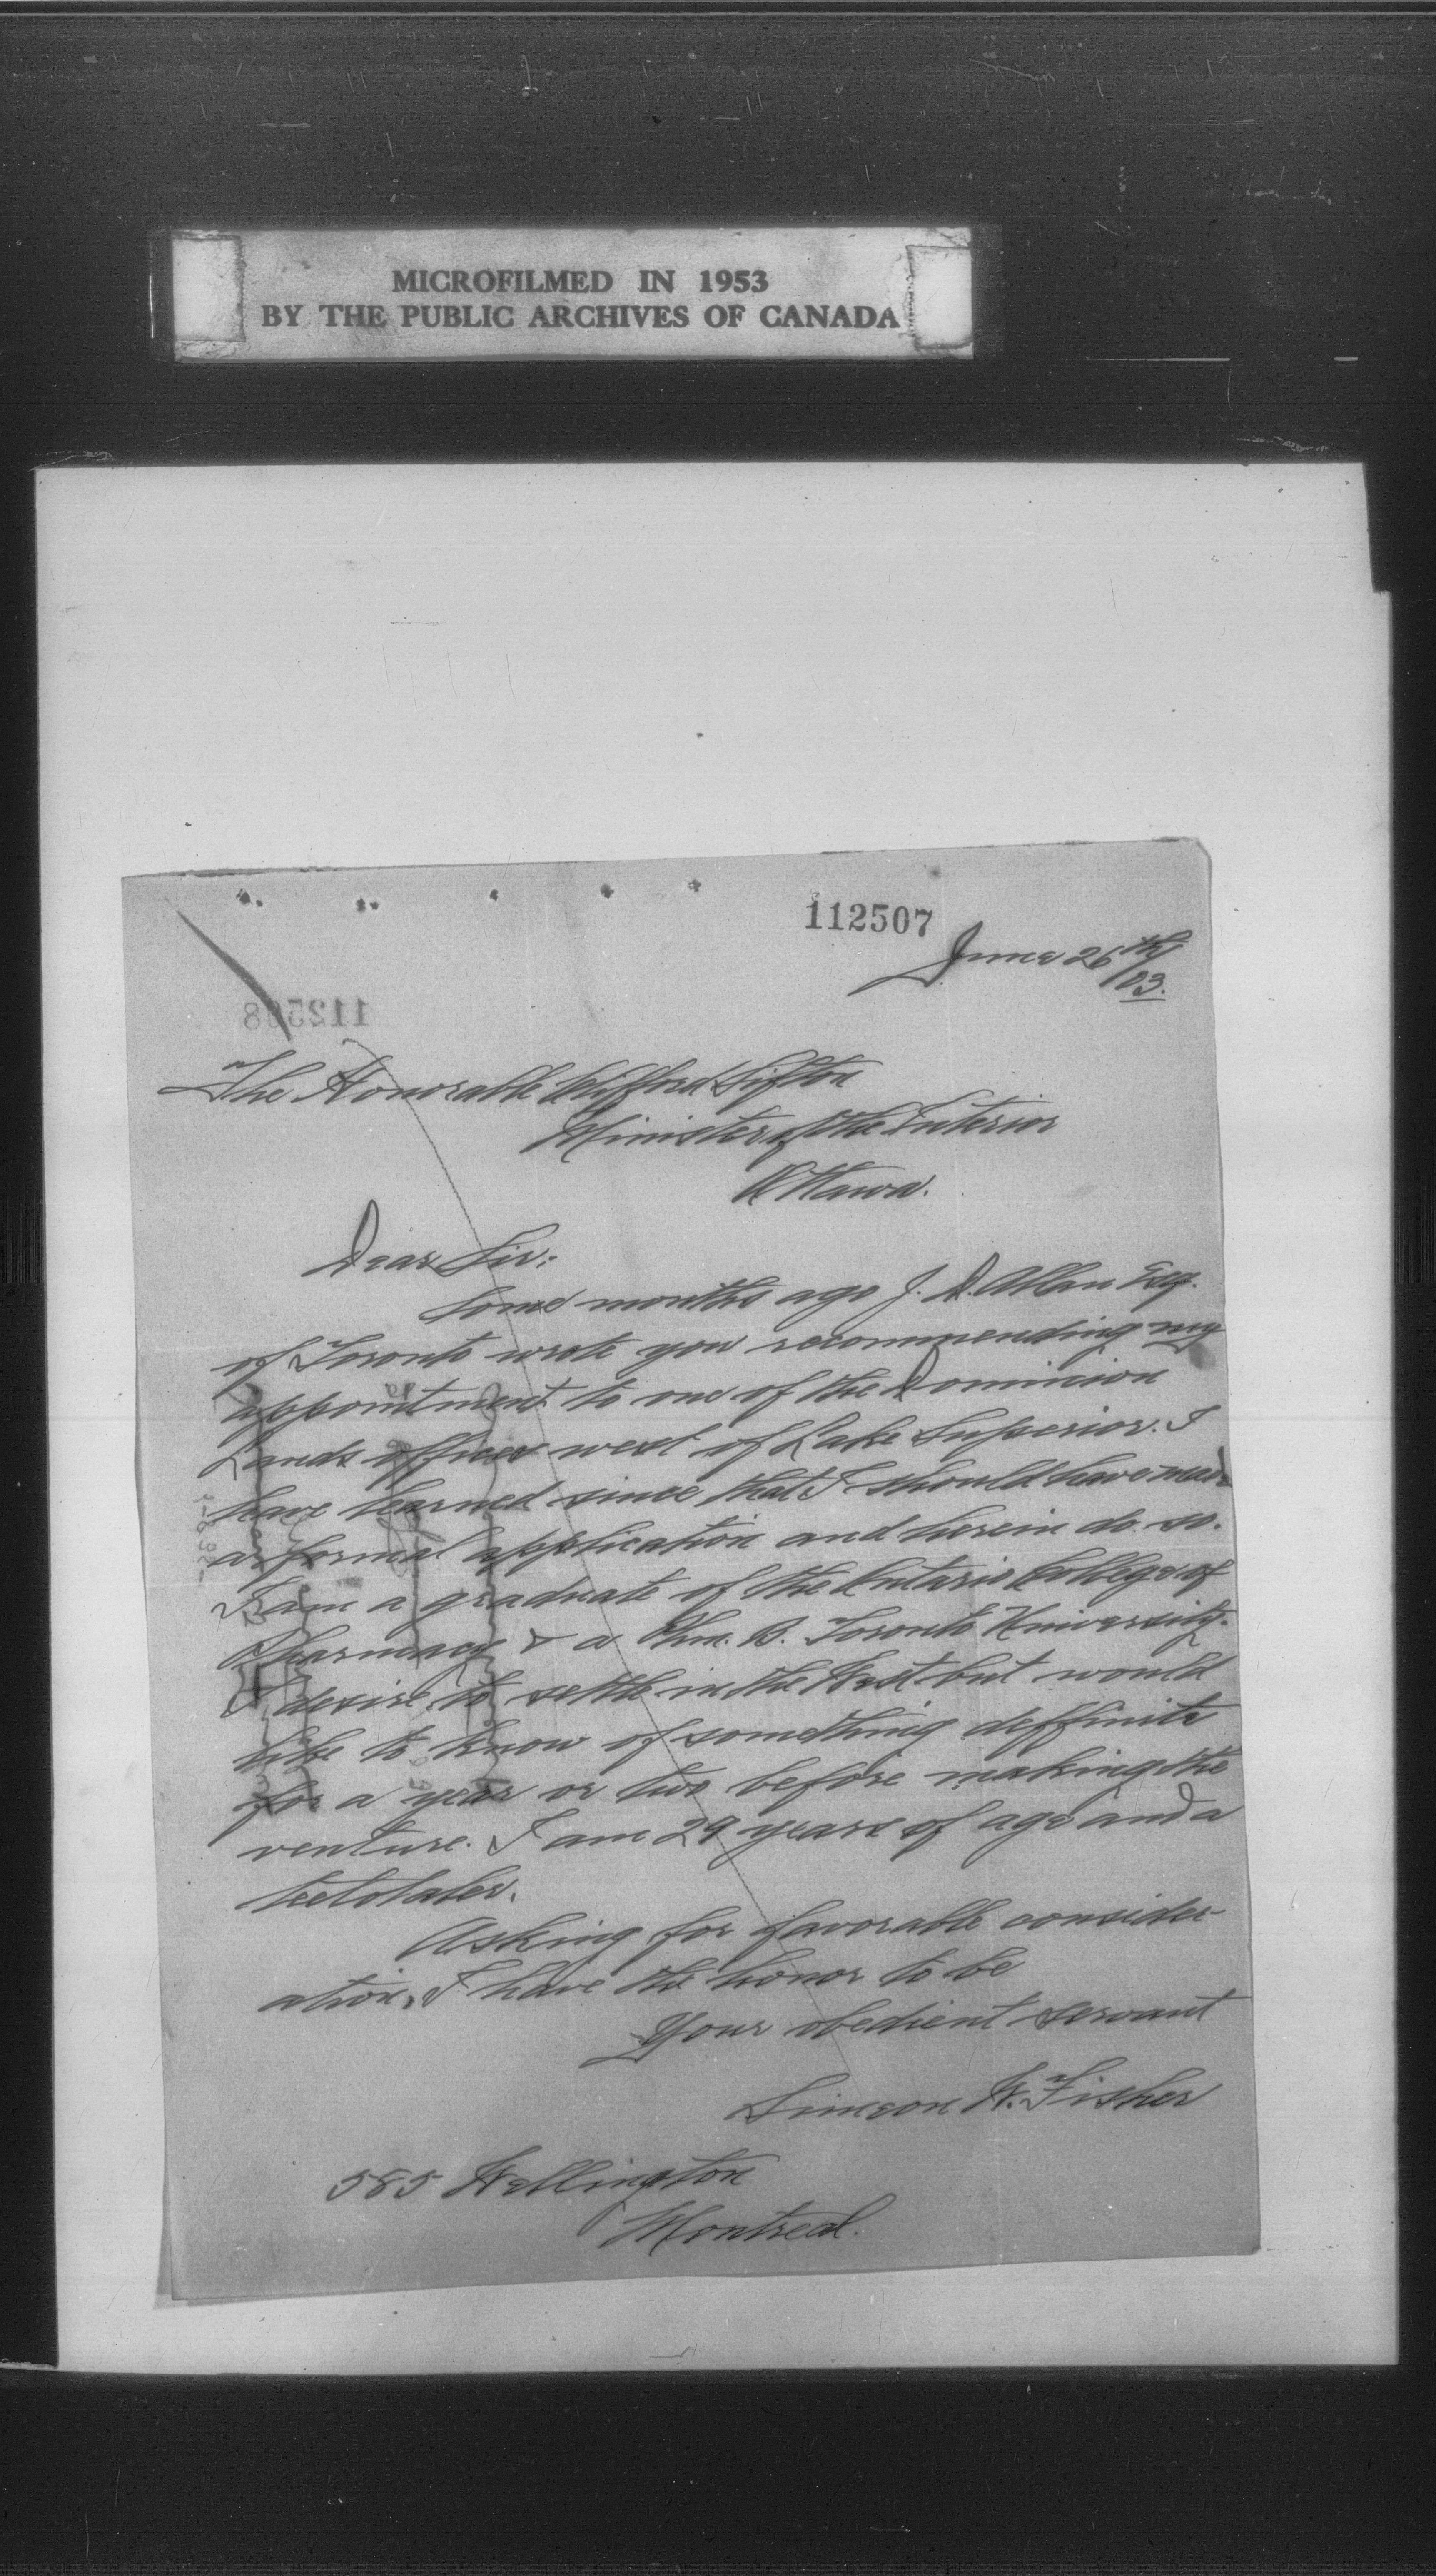 MICROFILMED IN 1953
BY THE PUBLIC ARCHIVES OF CANADA
112507
June 26th/03.
The Honorable Clifford Sifton
Minister of the Interior
Ottawa.
Dear Sir:
Some months ago J. D. Allan Esq.
of Toronto wrote you recommending my
appointment to one of the Dominion
Lands offices west of Lake Superior. I
have learned since that I should have made
a formal application and herein do so.
I am a graduate of the Ontario College of
Pharmacy & a Phm. B. Toronto University.
I desire to settle in the West but would
like to know of something deffinite
for a year or two before making the
venture. I am 29 years of age and a
teetotaler.
Asking for favorable consider-
ation, I have the honor to be
Your obedient servant
Simeon W. Fisher
585 Wellington
Montreal.